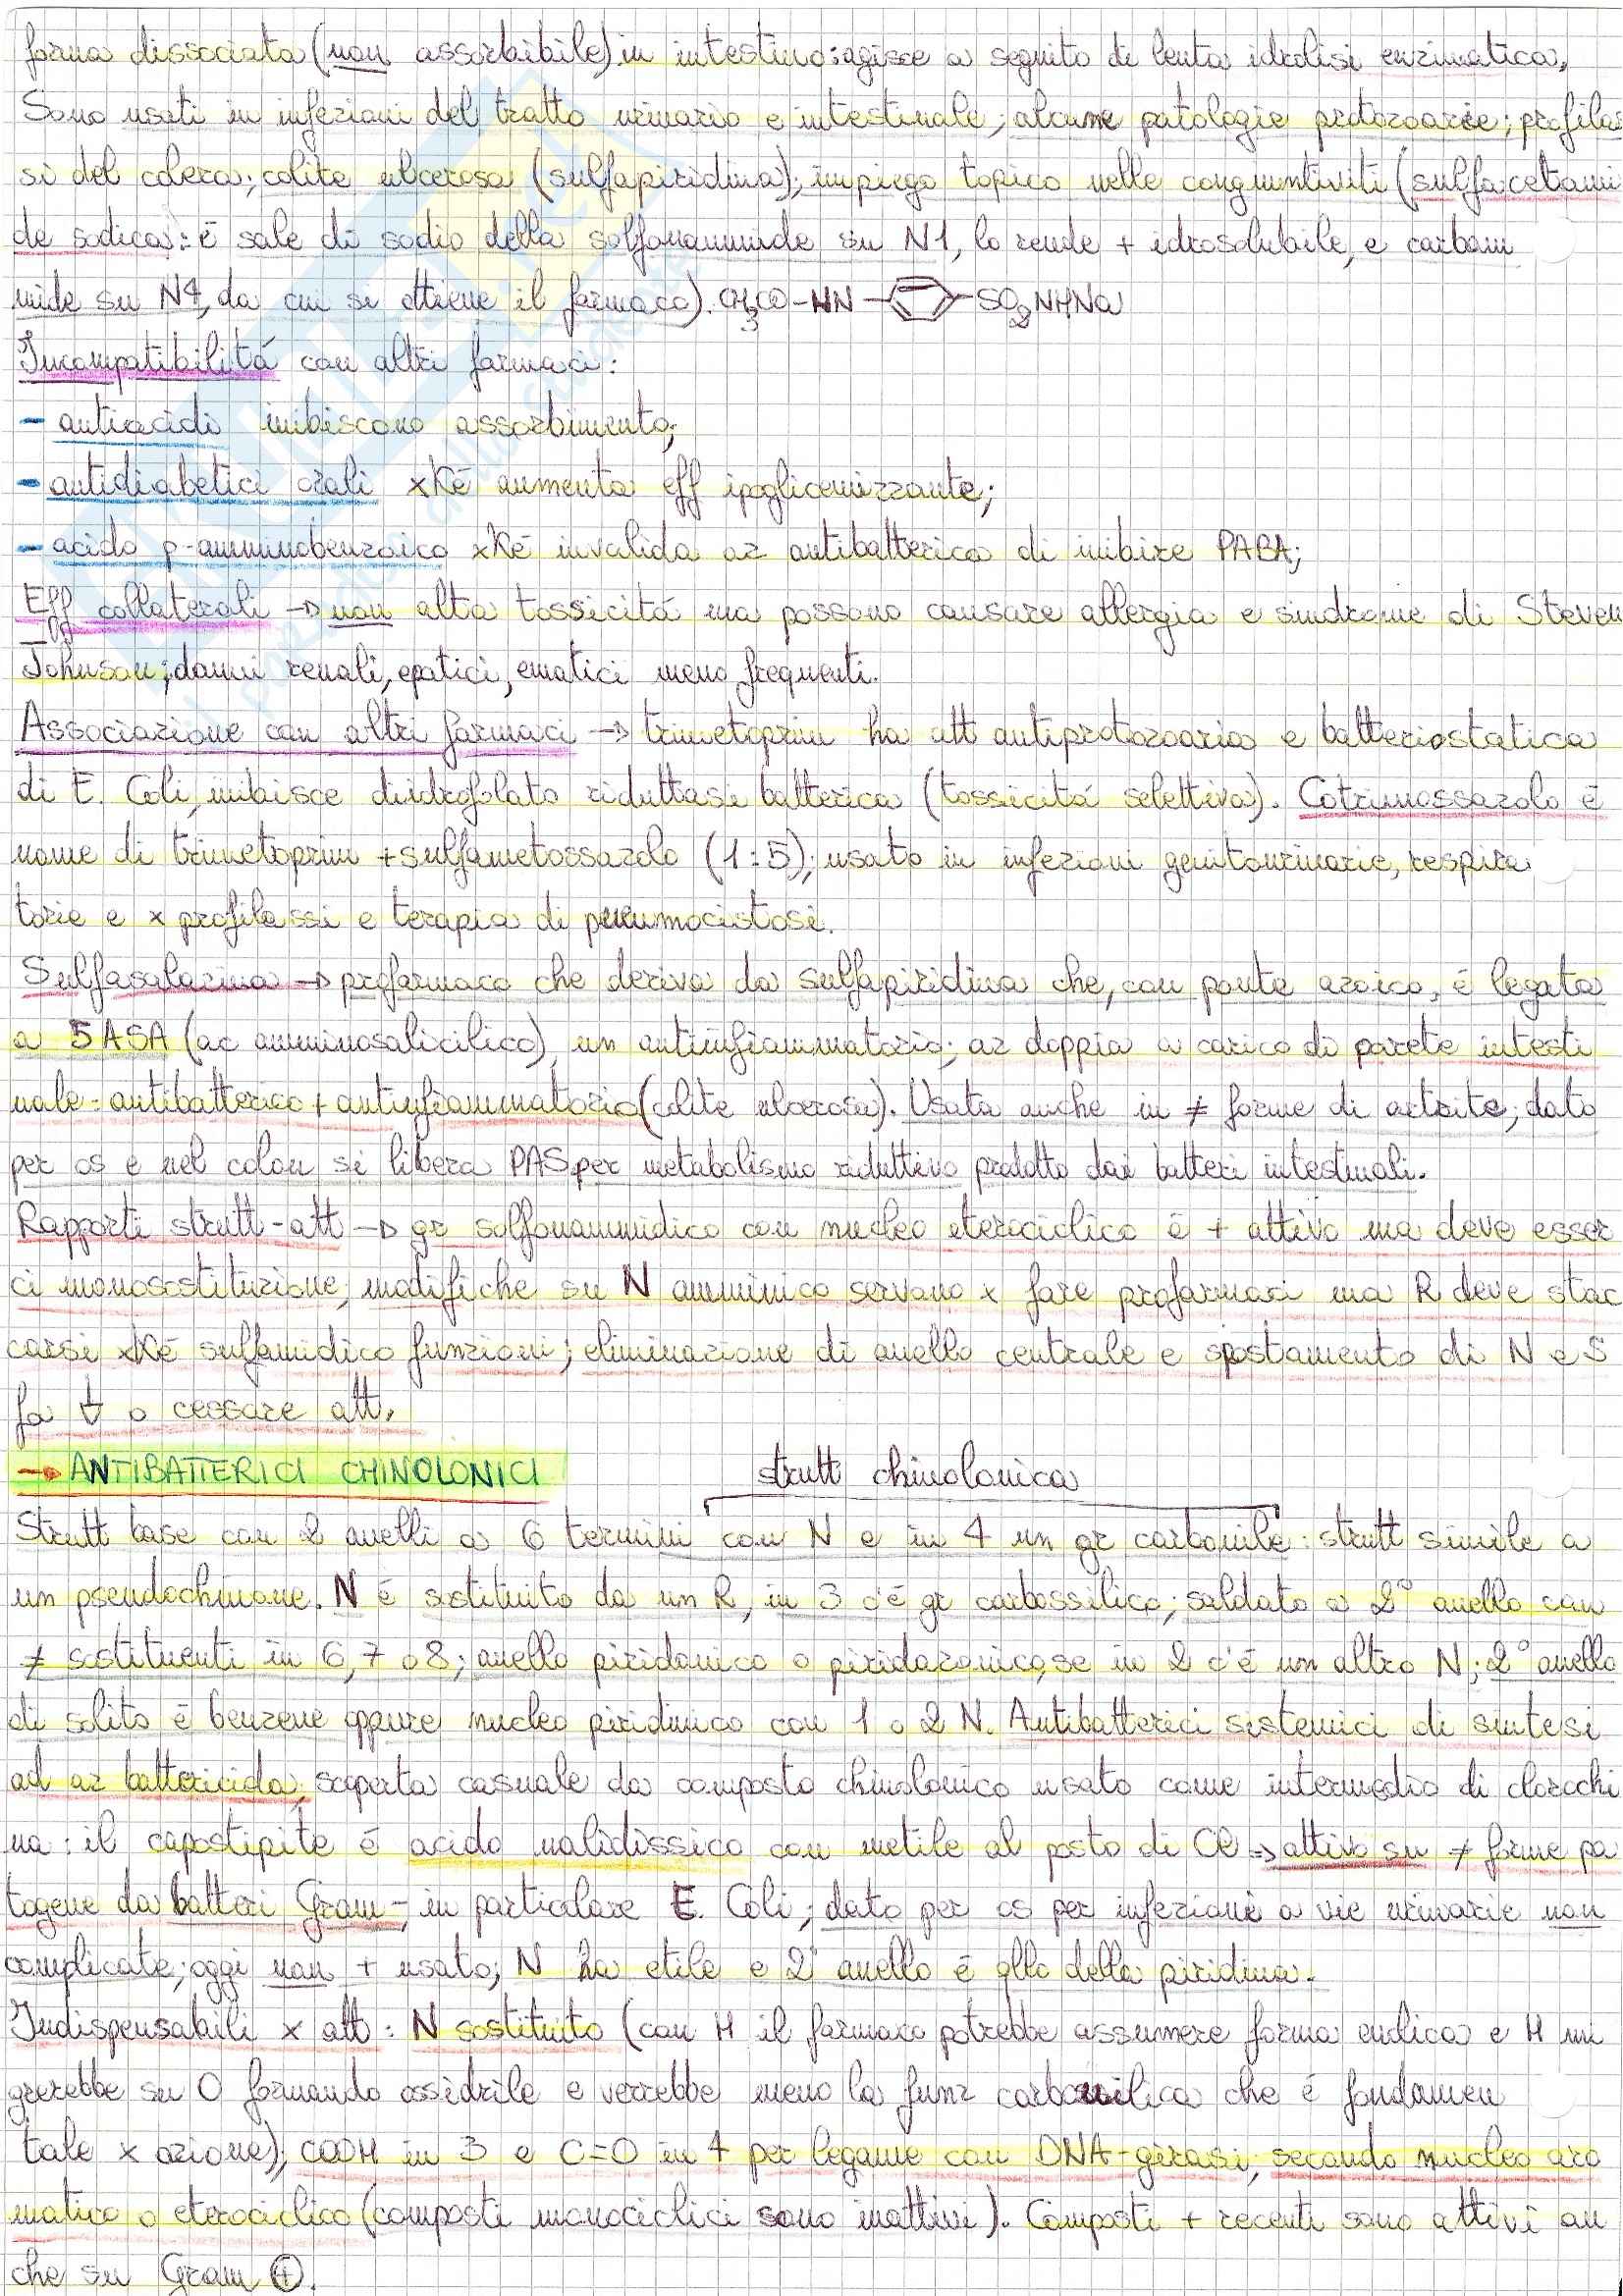 forma dissociata (non assorbibile) in intestino: agisce a seguito di lenta idrolisi enzimatica.
Sono usati in infezioni del tratto urinario e intestinale; alcune patologie protozoarie; profilas
si del colera; colite ulcerosa (sulfapiridina); impiego topico nelle congiuntiviti (sulfacetami
de sodica: è sale di sodio della solfonammide su N1, lo rende + idrosolubile, e carbam
mide su N4, da cui si ottiene il farmaco). CH3CO-HN- -SO2NHNa
Incompatibilità con altri farmaci:
- antiacidi inibiscono assorbimento;
- antidiabetici orali xké aumenta eff ipoglicemizzante;
- acido p-amminobenzoico xké invalida az antibatterica di inibire PABA;
Eff collaterali → non alta tossicità ma possono causare allergia e sindrome di Steven
Johnson; danni renali, epatici, ematici meno frequenti.
Associazione con altri farmaci → trimetoprim ha att antiprotozoaria e batteriostatica
di E. Coli, inibisce diidrofolato riduttasi batterica (tossicità selettiva). Cotrimossazolo è
nome di trimetoprim + sulfametossazolo (1:5); usato in infezioni genitourinarie, respira
torie e x profilassi e terapia di pneumocistosi.
Sulfasalazina → profarmaco che deriva da sulfapiridina che, con ponte azoico, è legata
a 5ASA (ac amminosalicilico), un antiinfiammatorio; az doppia a carico di parete intesti
nale: antibatterico + antinfiammatorio (colite ulcerosa). Usata anche in ≠ forme di artrite; dato
per os e nel colon si libera PAS per metabolismo riduttivo prodotto dai batteri intestinali.
Rapporti strutt-att → gr solfonammidico con nucleo eterociclico è + attivo ma deve esser
ci monosostituzione; modifiche su N amminico servono x fare profarmaci ma R deve stac
carsi xké sulfamidico funzioni; eliminazione di anello centrale e spostamento di N e S
fa ↓ o cessare att.
→ ANTIBATTERICI CHINOLONICI strutt chinolonica
Strutt base con 2 anelli a 6 termini con N e in 4 un gr carbonile: strutt simile a
un pseudochinone. N è sostituito da un R, in 3 c'è gr carbossilico; saldato a 2° anello con
≠ sostituenti in 6, 7 o 8; anello piridonico o piridazonico, se in 2 c'è un altro N; 2° anello
di solito è benzene oppure nucleo piridinico con 1 o 2 N. Antibatterici sistemici di sintesi
ad az battericida, scoperta casuale da composto chinolonico usato come intermedio di clorochi
na: il capostipite è acido nalidissico con metile al posto di Cl → attivo su ≠ forme pa
togene da batteri Gram-, in particolare E. Coli; dato per os per infezioni a vie urinarie non
complicate; oggi non + usato; N ha etile e 2° anello è qllo della piridina.
Indispensabili x att: N sostituito (con H il farmaco potrebbe assumere forma enolica e H mi
grerebbe su O formando ossidrile e verrebbe meno la funz carbonilica che è fondamen
tale x azione); COOH in 3 e C=O in 4 per legame con DNA-girasi; secondo nucleo aro
matico o eterociclico (composti monociclici sono inattivi). Composti + recenti sono attivi an
che su Gram ⊕.